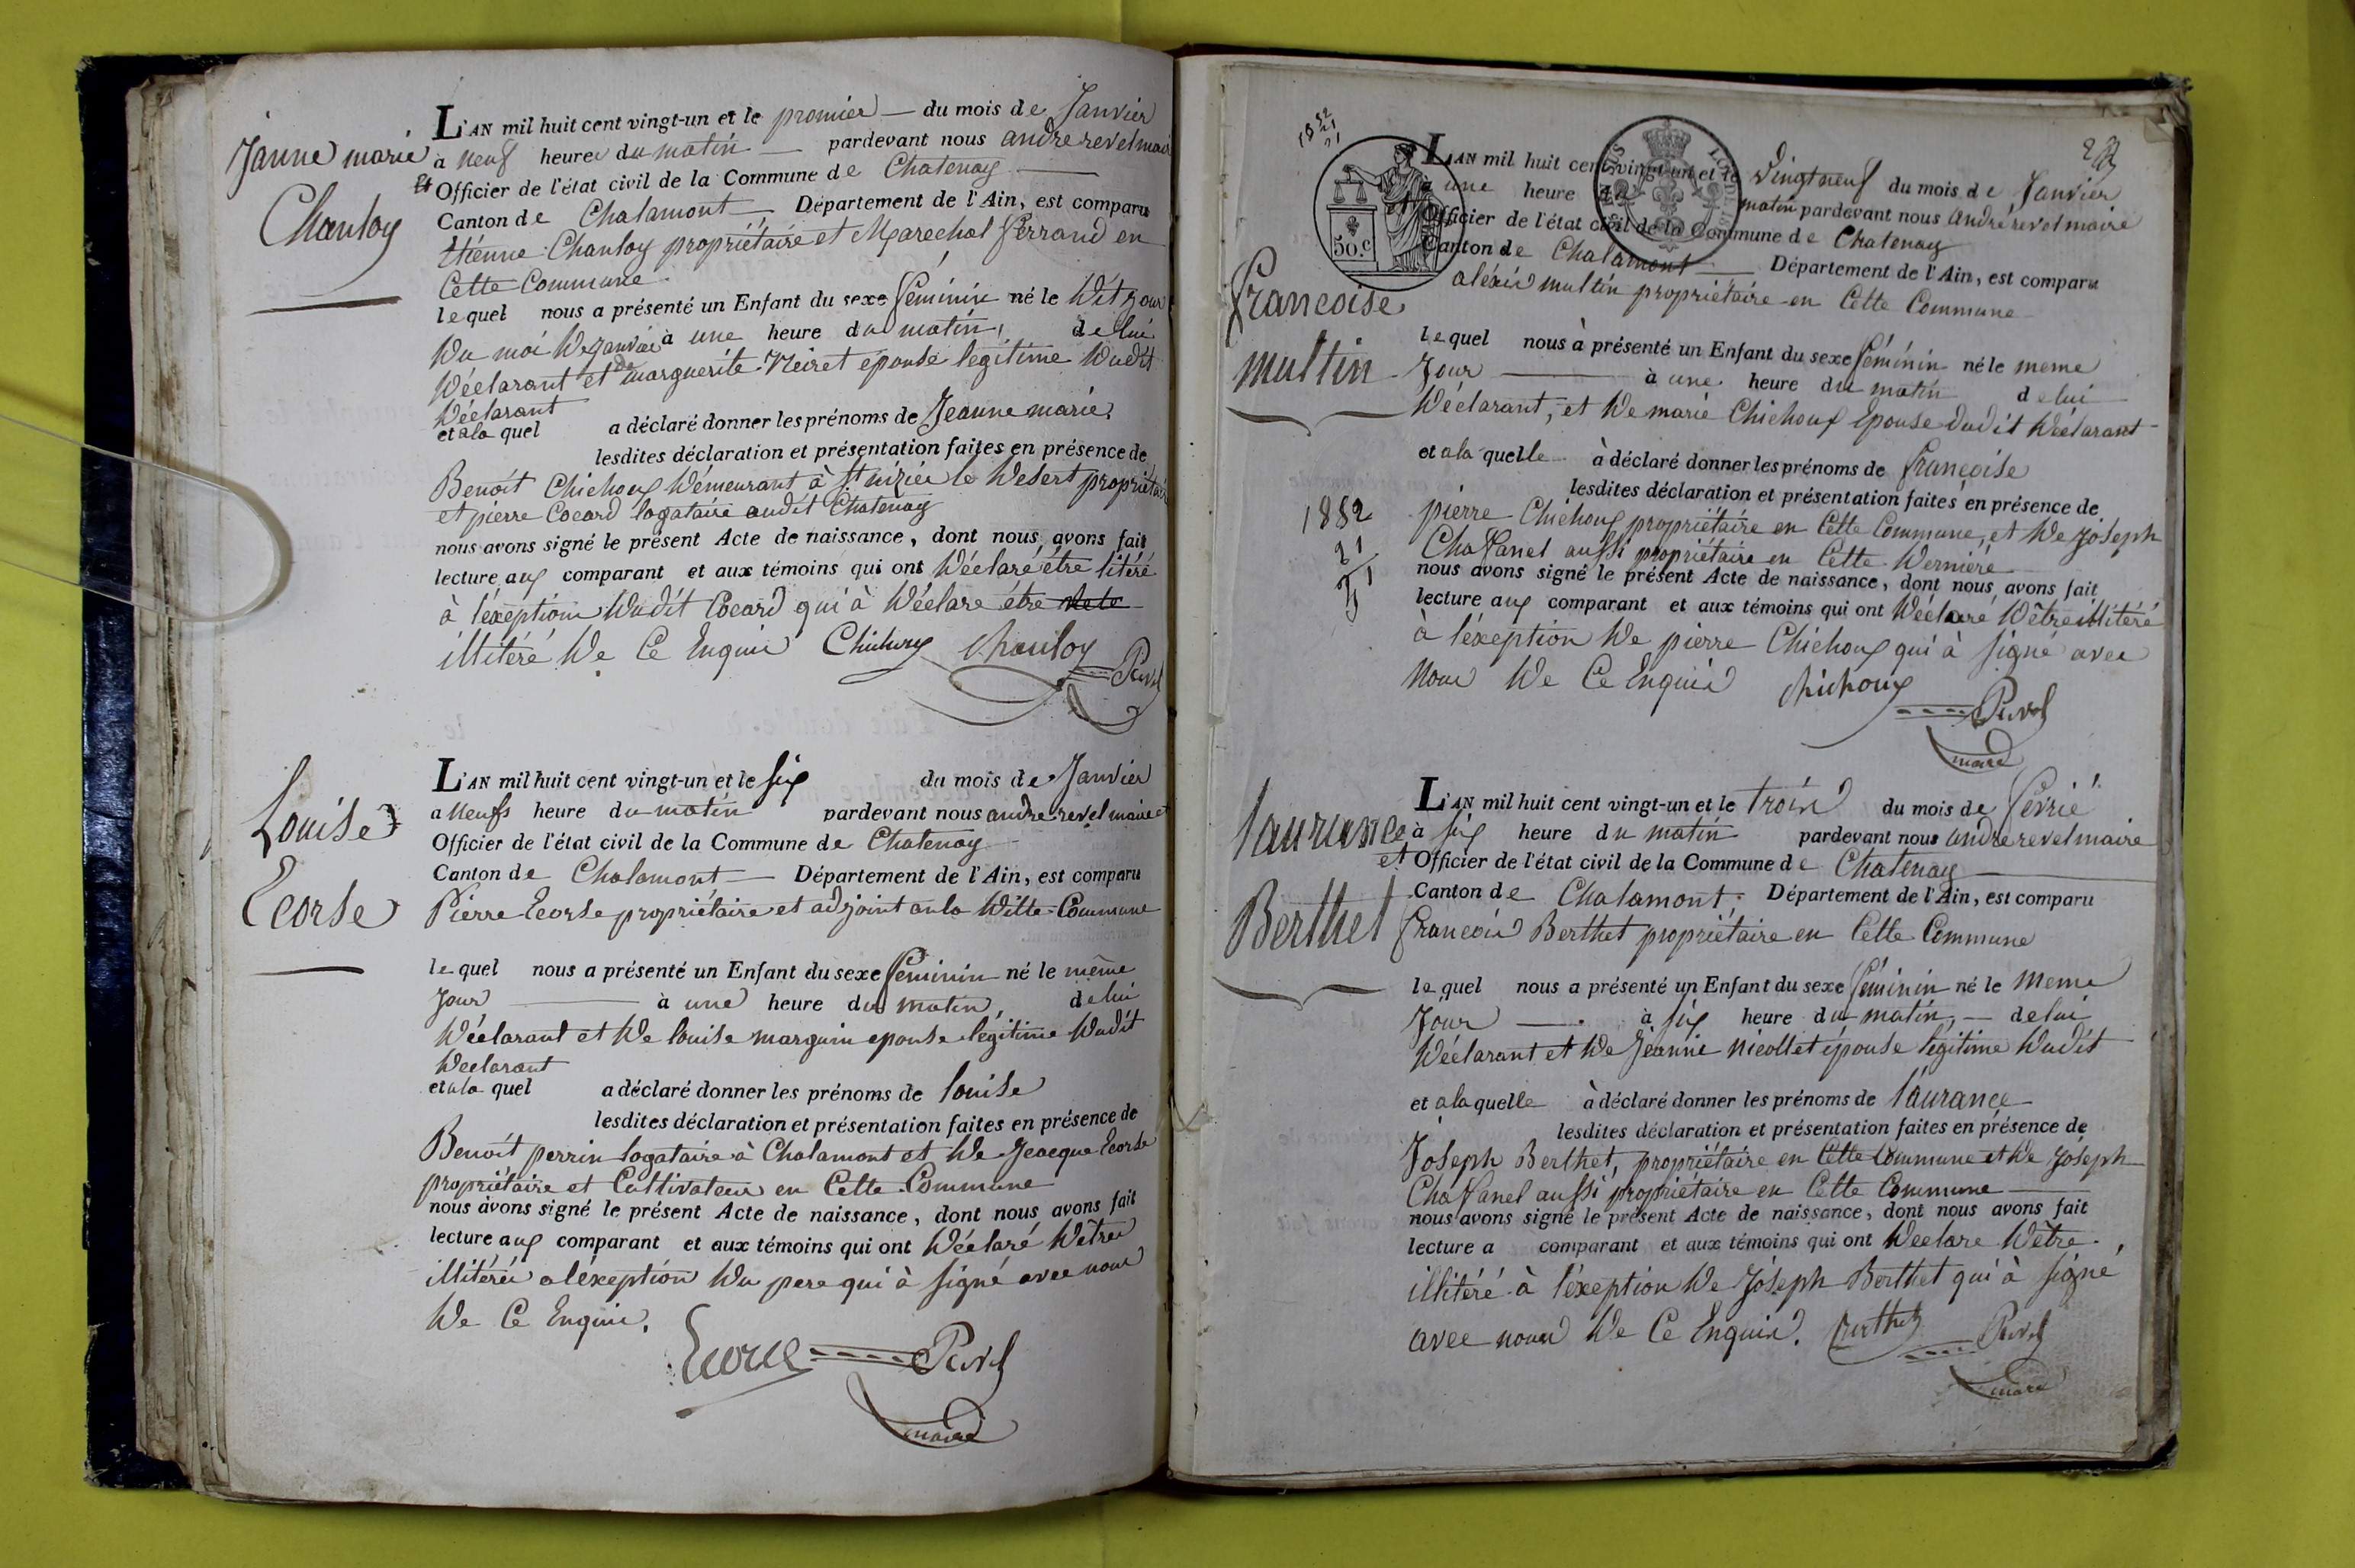 Janne marie
Chanloy
L'AN mil huit cent vingt-un et le premier du mois de Janvier
a neuf heure du matin pardevant nous andre revel maire
Et Officier de l'état civil de la Commune de Chatenay
Canton de Chalamont Département de l'Ain, est comparu
Etienne Chanloy propriétaire et Marechal ferrand en
Cette Commune
lequel nous a présenté un Enfant du sexe féminin né le dit jour
du moi de janvié à une heure du matin, de lui
déclarant et de marguerite Neiret épouse legitime dudit
déclarant
et a la quel a déclaré donner les prénoms de Jeanne marie,
lesdites déclaration et présentation faites en présence de
Benoit Chichoux démeurant à St nizier le desert propriétaire
et pierre Cocard logataire audit Chatenay
nous avons signé le présent Acte de naissance, dont nous avons fait
lecture aux comparant et aux témoins qui ont déclaré être litéré
à l'éxeption dudit Cocard qui à déclare être
illitéré de Ce Enquis Chichoux Chanloy
Revel
Louise
Ecorse
L'AN mil huit cent vingt-un et le six du mois de Janvier
a neufs heure du matin pardevant nous andre revel maire et
Officier de l'état civil de la Commune de Chatenay
Canton de Chalamont Département de l'Ain, est comparu
Pierre Ecorse propriétaire et adjoint an la ditte Commune
lequel nous a présenté un Enfant du sexe féminin né le même
Jour à une heure du matin, de lui
déclarant et de louise marguin epouse legitime dudit
declarant
et a la quel a déclaré donner les prénoms de louise
lesdites déclaration et présentation faites en présence de
Benoit perrin logataire à Chalamont et de Jeacque Ecorse
propriétaire et Cultivateur en Cette Commune
nous avons signé le présent Acte de naissance, dont nous avons fait
lecture aux comparant et aux témoins qui ont déclaré d'être
illitéré a l'éxeption du pere qui à signé avec nous
de Ce Enquis.
Ecorse Revel
maire
1852
21
21
50.c
28
francoise
multin
L'AN mil huit cent vingt-un et le vingt neuf du mois de Janvier
à une heure du matin pardevant nous André revel maire
et Officier de l'état civil de la Commune de Chatenay
Canton de Chalamont Département de l'Ain, est comparu
aléxis multin propriétaire en Cette Commune
lequel nous à présenté un Enfant du sexe féminin né le meme
Jour à une heure du matin de lui
déclarant, et de marie Chichoux Epouse dudit déclarant
et a la quelle à déclaré donner les prénoms de francoise
lesdites déclaration et présentation faites en présence de
1852
21
pierre Chichoux propriétaire en Cette Commune, et de Joseph
Chafanel aussi propriétaire en Cette derniere
nous avons signé le présent Acte de naissance, dont nous avons fait
lecture aux comparant et aux témoins qui ont déclaré d'être illitéré
à l'éxeption de pierre Chichoux qui à signé avec
nous de Ce Enquis Chichoux
Revel
maire
laurance
Berthet
L'AN mil huit cent vingt-un et le trois du mois de fevrié
à six heure du matin pardevant nous andre revel maire
et Officier de l'état civil de la Commune de Chatenay
Canton de Chalamont, Département de l'Ain, est comparu
francois Berthet propriétaire en Cette Commune
lequel nous a présenté un Enfant du sexe féminin né le meme
Jour à six heure du matin, de lui
déclarant et de Jeanne nicollet épouse légitime dudit
et a la quelle à déclaré donner les prénoms de l'aurance
lesdites déclaration et présentation faites en présence de
Joseph Berthet, propriétaire en Cette Commune et de Joseph
Chafanel aussi propriétaire en Cette Commune
nous avons signé le présent Acte de naissance, dont nous avons fait
lecture a comparant et aux témoins qui ont déclare d'être
illitéré à l'éxeption de Joseph Berthet qui à signé
avec nous de Ce Enquis. Berthet Revel
maire